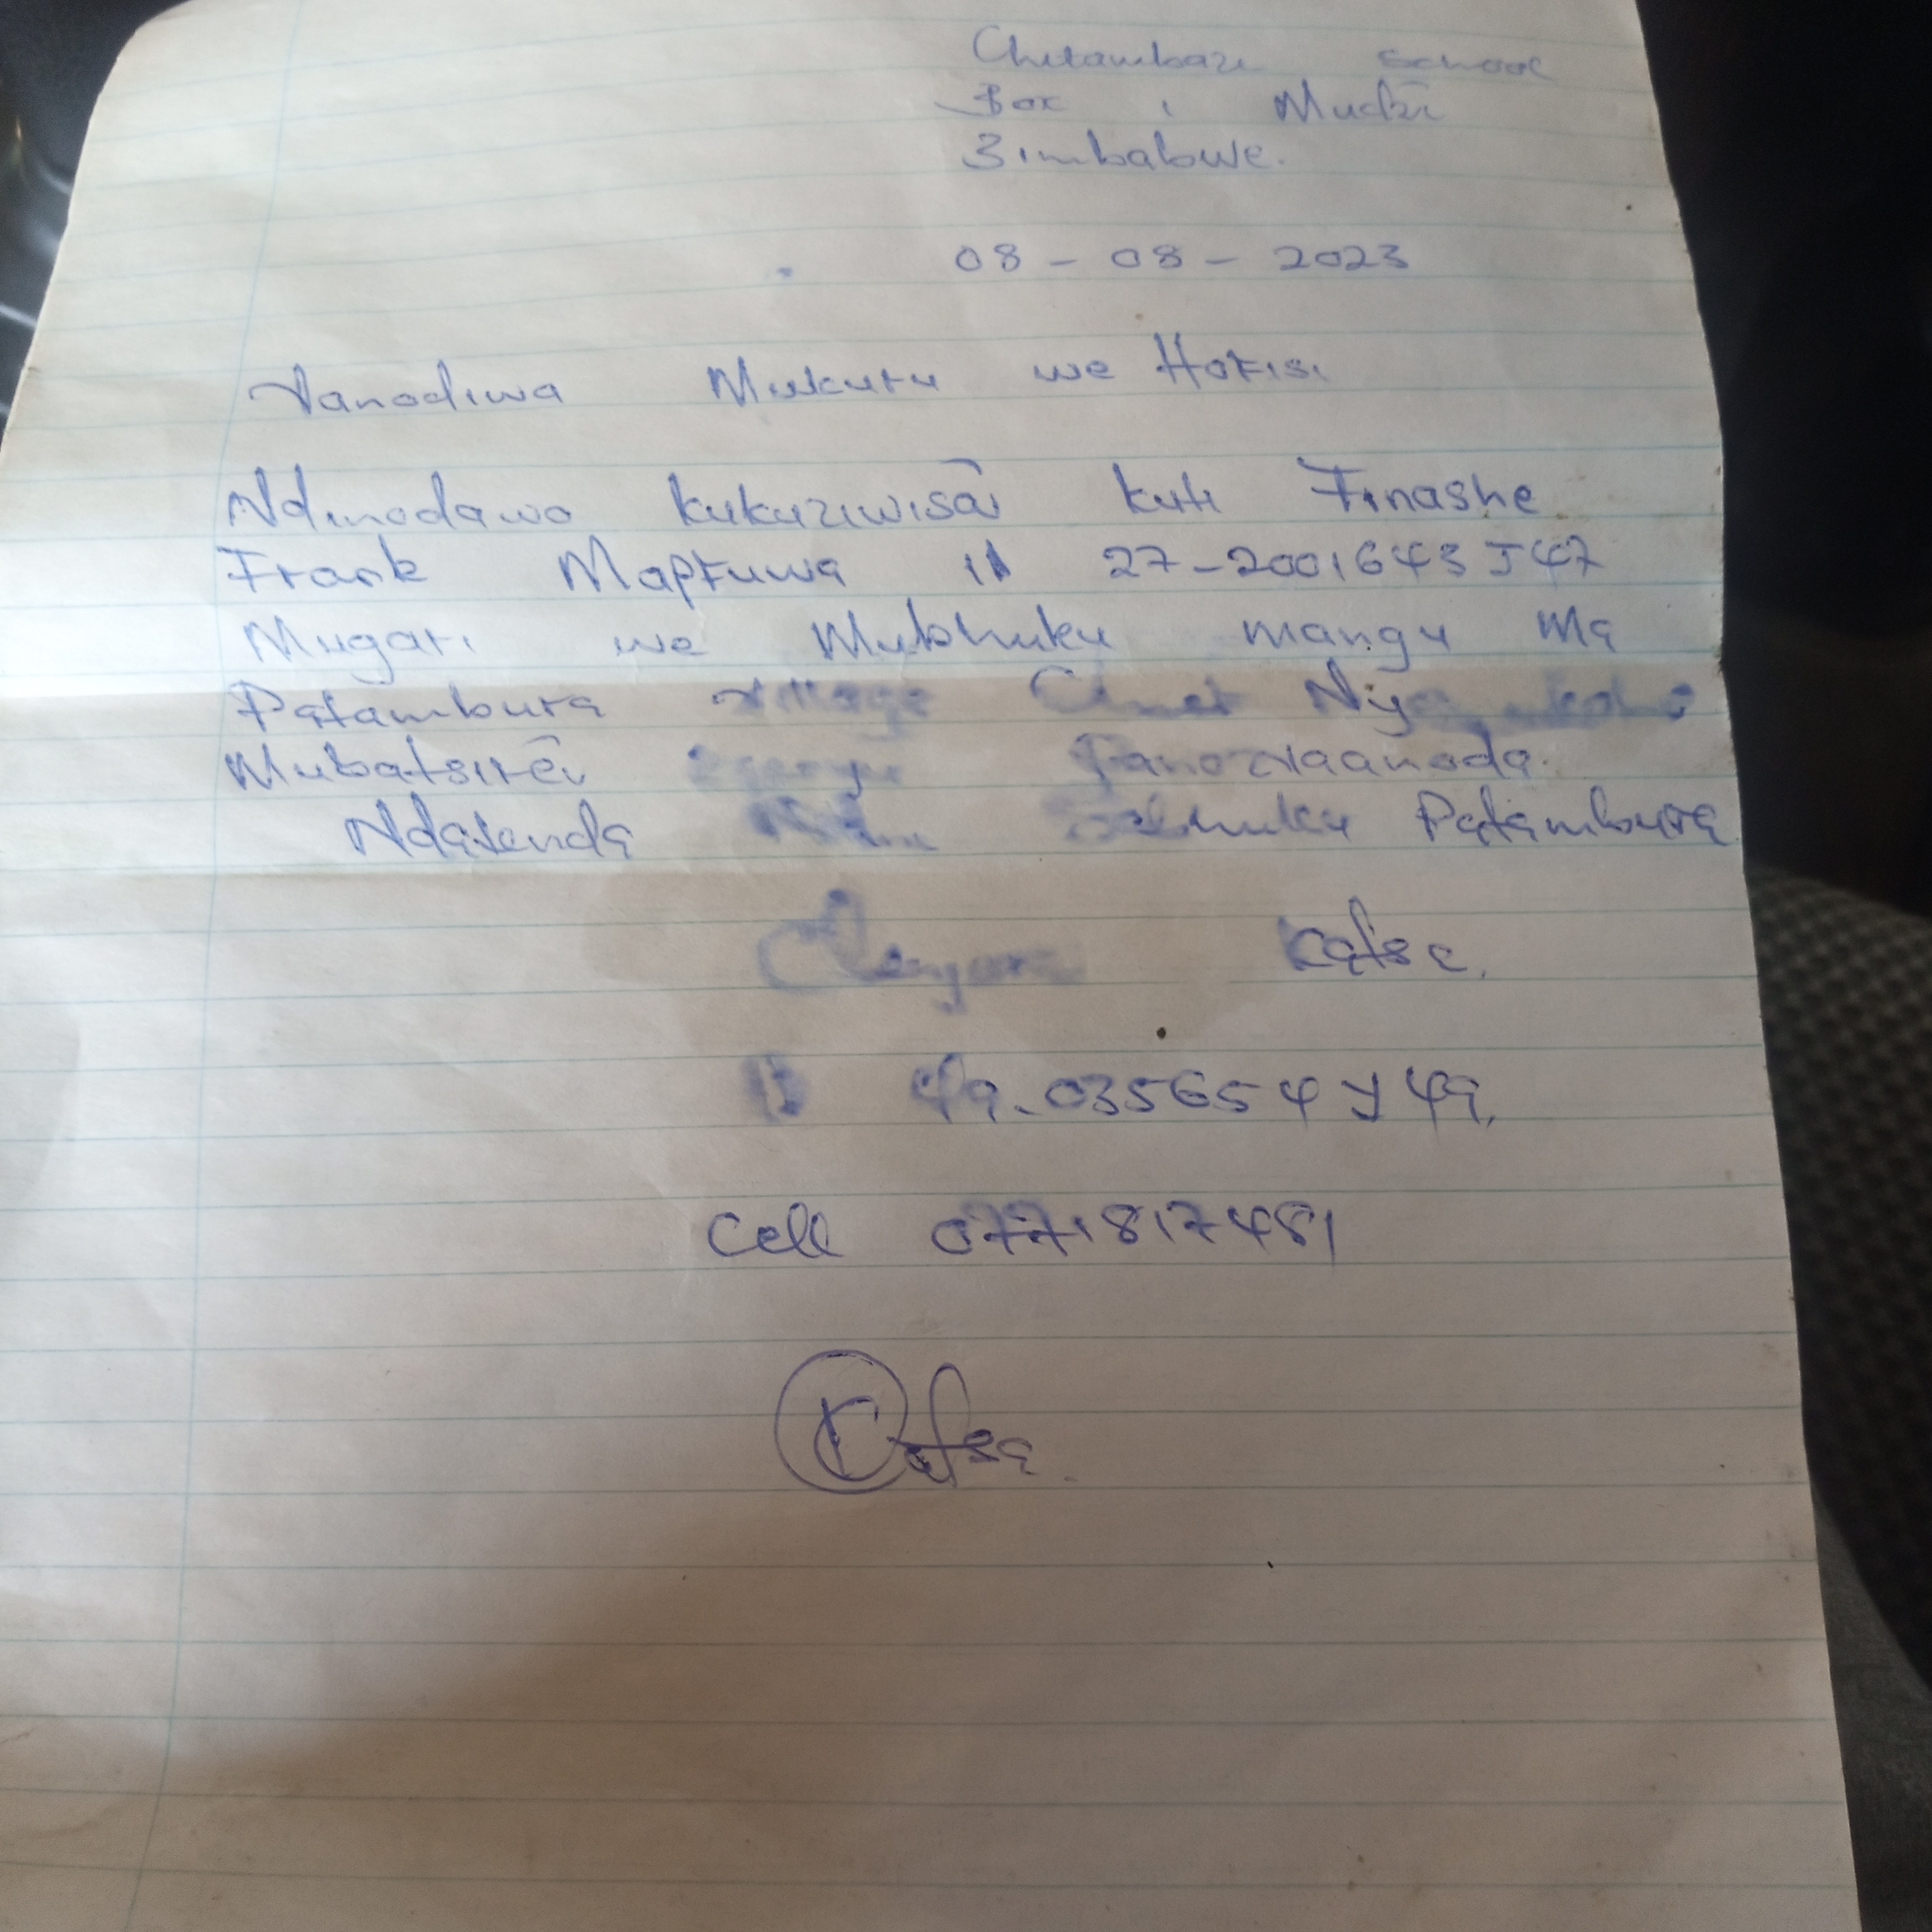 Chitambare School
Box 1 Mudzi
Zimbabwe.
08 - 08 - 2023
Vanodiwa Mukuru we Hofisi
Ndinodawo kukuziwisai kuti Tinashe
Frank Mapfuwa ID 27-2001643J47
Mugari we Mubhuku mangu Ma
Patambura village Chief
Mubatsirei Zvaanoda.
Ndatenda Sabhuku Patambura
Kafse.
ID 49-035654 Y 49.
Cell 0771817481
Kafse.